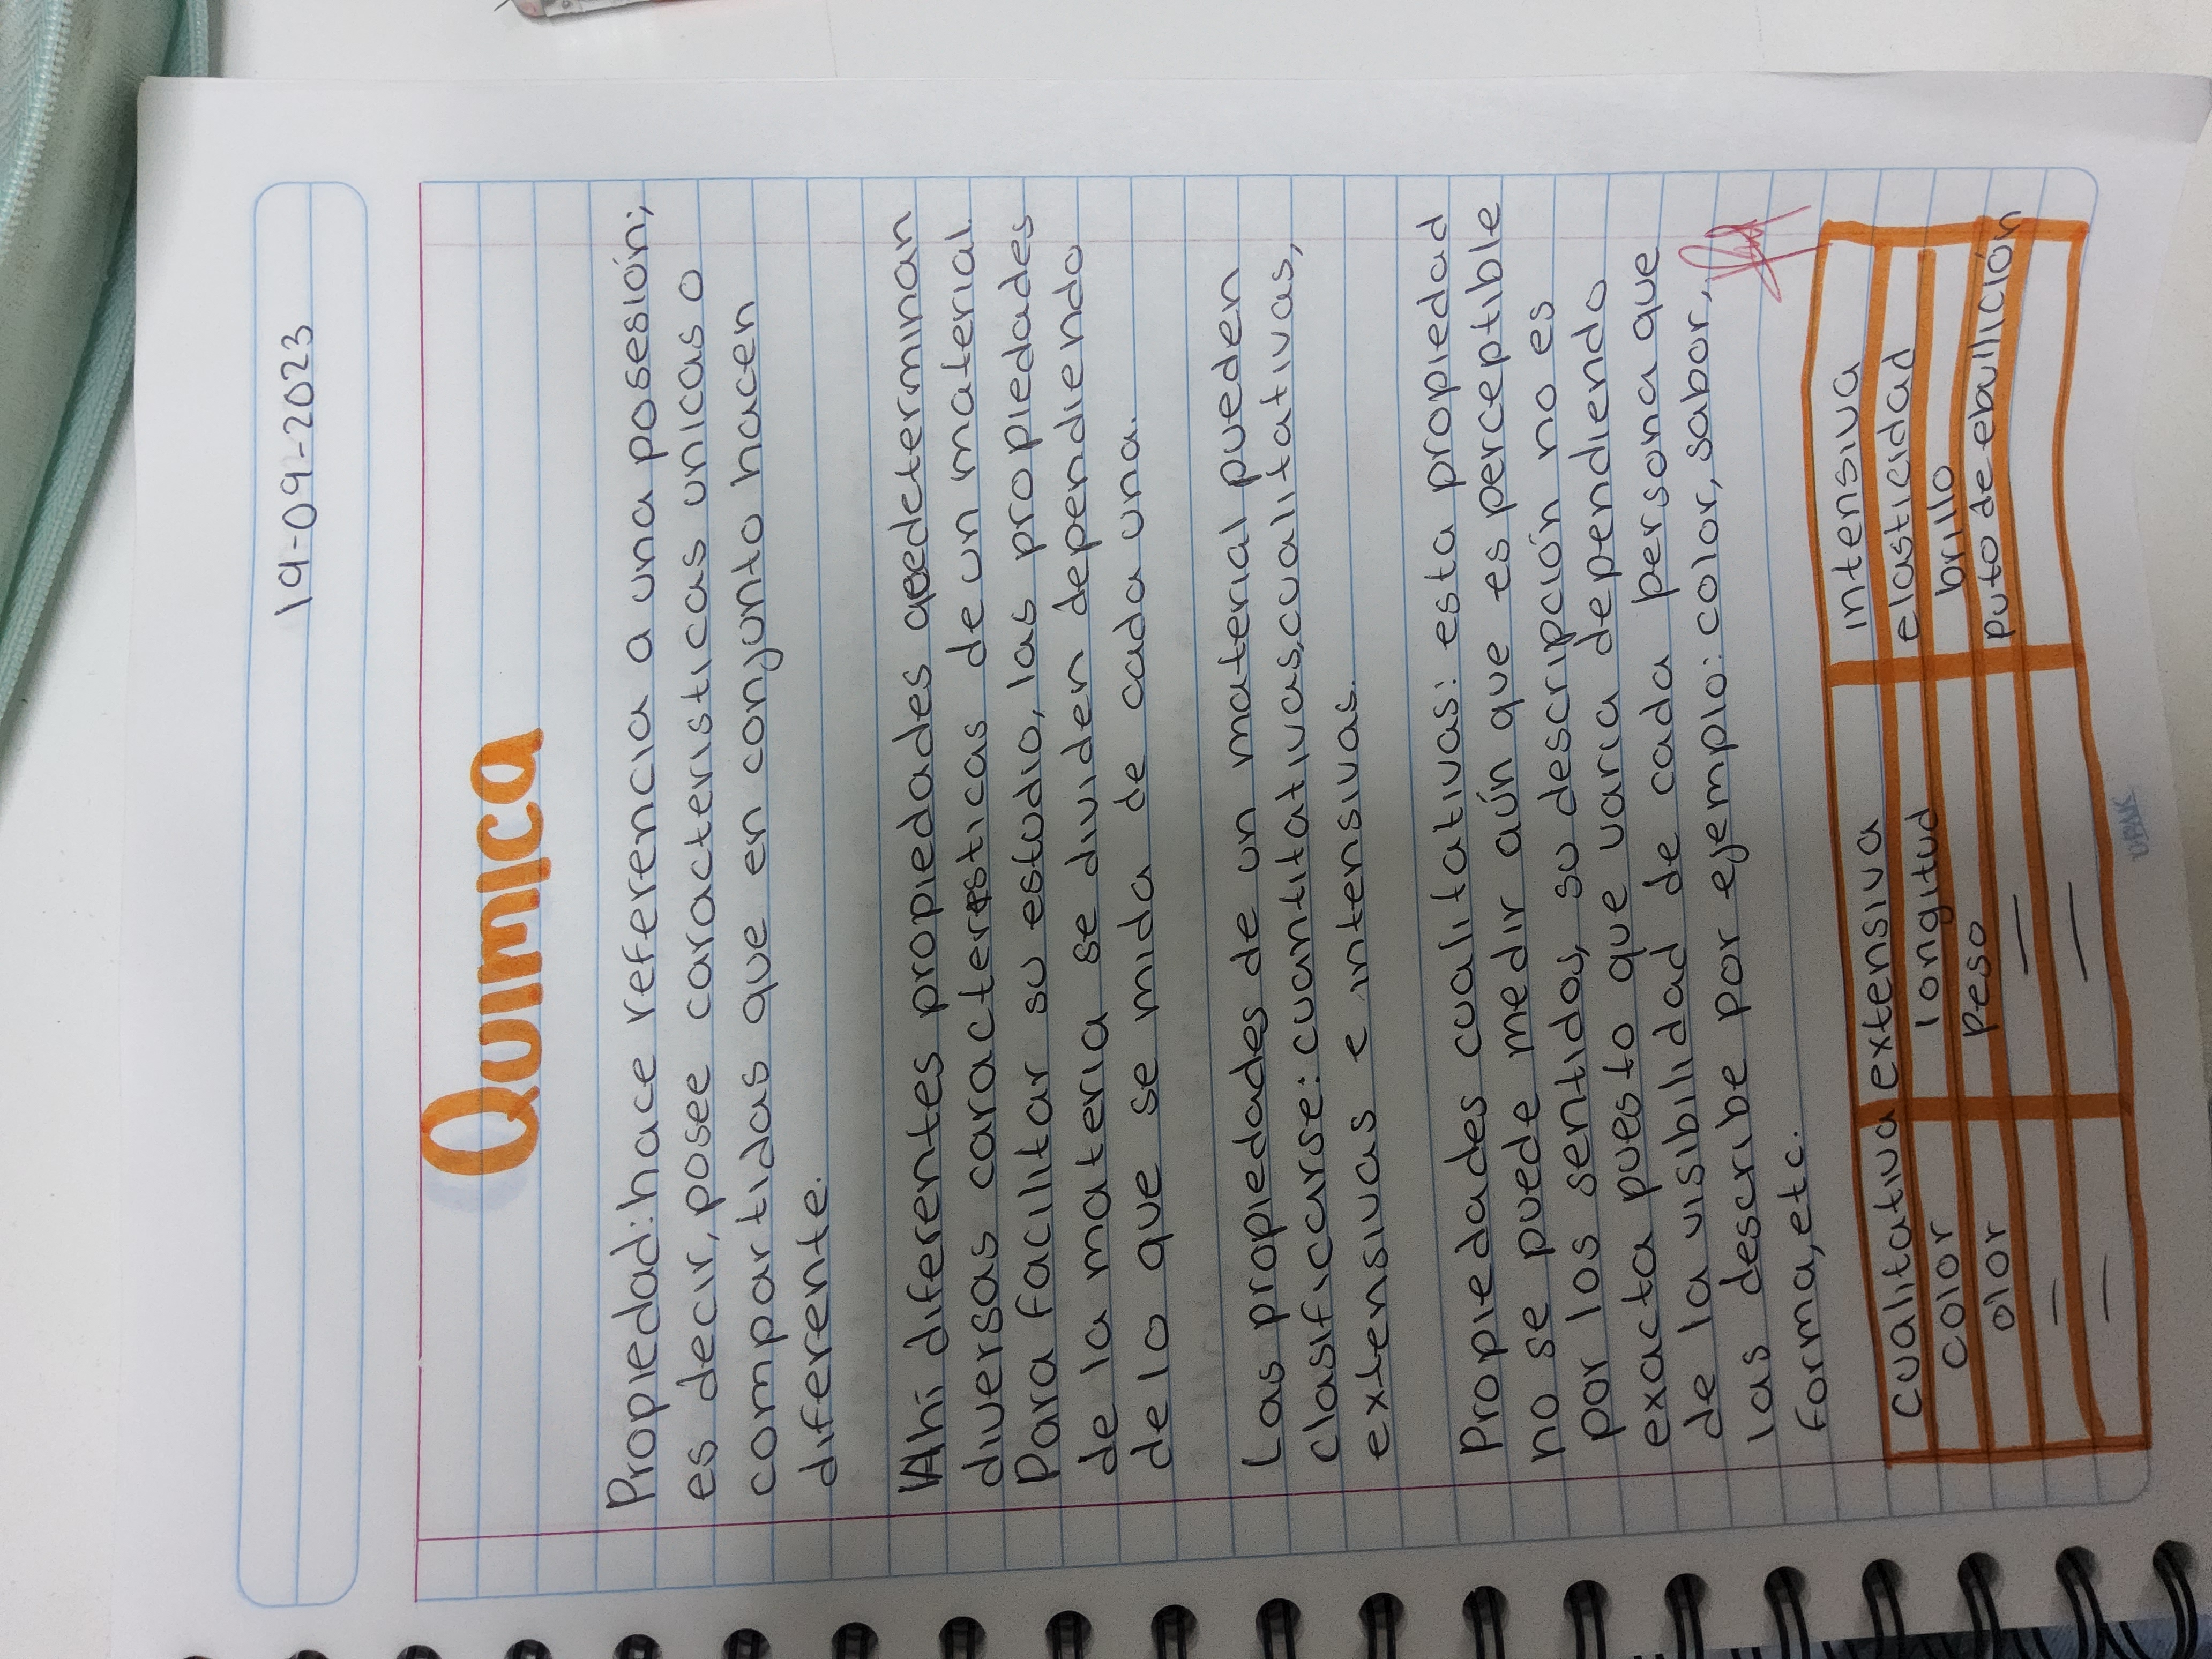 19-09-2023
Quimica
Propiedad: hace referencia a una posesión;
es decir, posee caracteristicas unicas o
compartidas que en conjunto hacen
diferente.
Ahi diferentes propiedades determinan
diversas caracteristicas de un material.
Para facilitar su estudio, las propiedades
de la materia se dividen dependiendo
de lo que se mida de cada una.
Las propiedades de un material pueden
clasificarse: cuantitativas, cualitativas,
extensivas e intensivas.
Propiedades cualitativas: esta propiedad
no se puede medir aún que es perceptible
por los sentidos, su descripción no es
exacta puesto que varia dependiendo
de la visibilidad de cada persona que
las describe por ejemplo: color, sabor,
forma, etc.
cualitativa extensiva intensiva
color longitud elasticidad
olor peso brillo
— — puto de ebullición
— —